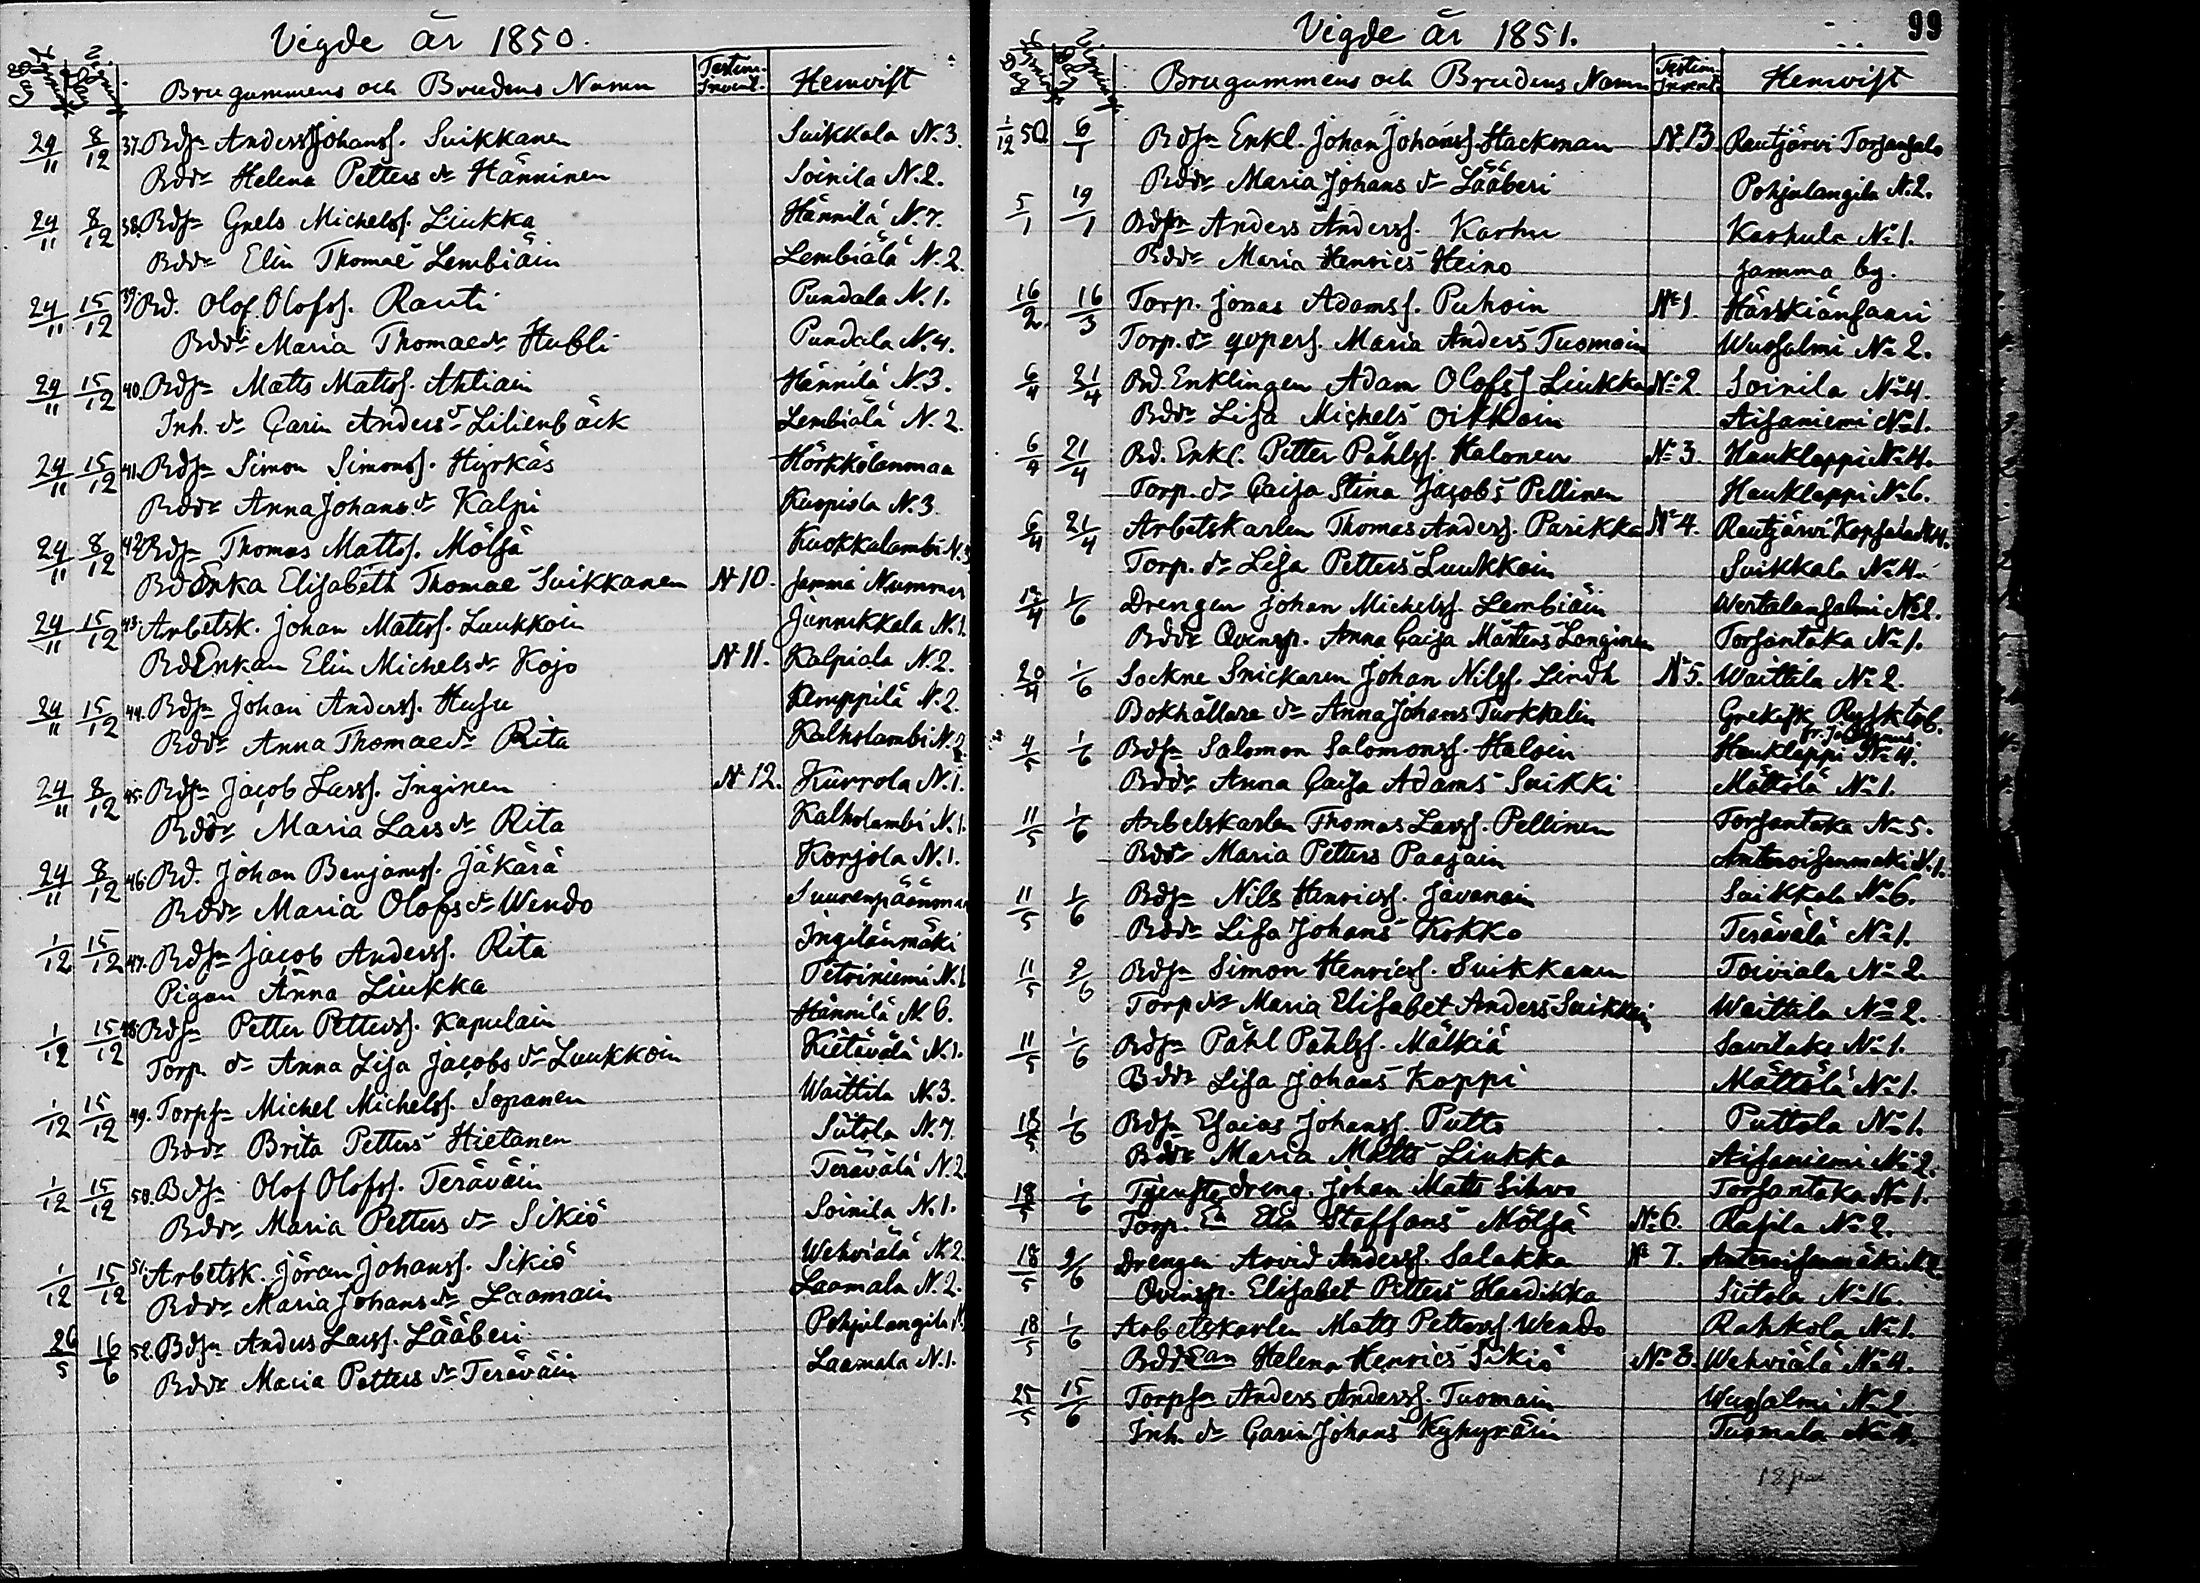 Vigde år 1850.
Brugummens och Brudens Namn Testim. Invent. Hemvist
24/11 8/12 37. Bdsn Anders Johanss. Suikkanen Suikkala N. 3.
Bddr Helena Petters dr Hänninen Soinila N. 2.
24/11 8/12 38. Bdsn Grels Michelss. Liukka Hännilä N. 7.
Bddr Elin Thomae Lembiäin Lembiälä N. 2.
24/11 15/12 39. Bd. Olof Olofss. Rauti Pundala N. 1.
Bddr Maria Thomae dr Hubli Pundala N. 4.
24/11 15/12 40. Bdsn Matts Mattss. Ahtiain Hännilä N. 3.
Inh. dr Carin Anders dr Lilienbäck Lembiälä N. 2.
24/11 15/12 41. Bdsn Simon Simonss. Hyrkäs Hörkkölänmaa
Bddr Anna Johans dr Kalpi Kuspiola N. 3
24/11 8/12 42. Bdsn Thomas Mattss. Mölsä Kuokkalambi N. 3
Bd Enka Elisabeth Thomae Suikkanen N. 10. Samma Nummer
24/11 15/12 43. Arbetsk. Johan Matess. Luukkoin Junnikkala N. 1.
Bd Enkan Elin Michels dr Kojo N. 11. Kalpiala N. 2.
24/11 15/12 44. Bdsn Johan Anderss. Husu Kemppilä N. 2.
Bddr Anna Thomae dr Rita Kalholambi N. 2
24/11 8/12 45. Bdsn Jacob Larss. Inginen N. 12. Kurrola N. 1.
Bddr Maria Lars dr Rita Kalholambi N. 1.
24/11 8/12 46. Bd. Johan Benjamss. Jäkärä Korjola N. 1.
Bddr Maria Olofs dr Wendo Suurenpäänmaa
1/12 15/12 47. Bdsn Jacob Anderss. Rita Ingilänmäki
Pigan Anna Liukka Petriniemi N. 1
1/12 15/12 48. Bdsn Petter Petterss. Kapulain Hännilä N. 6.
Torp. dr Anna Lisa Jacobs dr Luukkoin Kietävälä N. 1.
1/12 15/12 49. Torpsn Michel Michelss. Sopanen Waittila N. 3.
Bddr Brita Petters Hietanen Sütola N. 7.
1/12 15/12 50. Bdsn Olof Olofss. Teräväin Terävälä N. 2
Bddr Maria Petters dr Sikiö Soinila N. 1.
1/12 15/12 51. Arbetsk. Jöran Johanss. Sikiö Wehviälä N. 2.
Bddr Maria Johans dr Laamain Laamala N. 2.
26/5 16/6 52. Bdsn Anders Larss. Lääberi Pohjalangila N.
Bddr Maria Petters dr Teräväin Laamala N. 1.
Vigde år 1851. 99
Brugummens och Brudens Namn Testim. Invent. Hemvist
1/12 50 6/1 Bdsn Enkl. Johan Johanss. Stackman N. 13. Rautjärvi Torsansalo
Bddr Maria Johans dr Lääberi Pohjalangila N. 2.
5/1 19/1 Bdsn Anders Anderss. Karhu Karhula No 1.
Bddr Maria Henrics Heino Samma by.
16/2 16/3 Torp. Jonas Adamss. Puhoin No 1. Härskiänsaari
Torp. dr Maria Anders Tuomain Wuosalmi No 2.
6/4 21/4 Bd. Enklingen Adam Olofss Liukka No 2. Soinila No 4.
Bddr Lisa Michels Oikkoin Aisaniemi No 1.
6/4 21/4 Bd. Enkl. Petter Påhlss. Halonen No 3. Hauklappi No 4.
Torp. dr Caisa Stina Jacobs Pellinen Hauklappi No 6.
6/4 21/4 Arbetskarlen Thomas Anderss. Parikka No 4. Rautjärvi Kopsala N 4.
Torp. dr Lisa Petters Luukkoin Suikkala No 4.
12/4 1/6 Drengen Johan Michelss. Lembiäin Wertalansalmi No 2.
Bddr Qvinsp. Anna Caisa Mårtens Longinen Torsantaka No 1.
20/4 1/6 Sockne Snickaren Johan Nilss. Lindh No 5. Waittila No 2.
Bokhållare dr Anna Johans Turkkelin Grekisk Rysk
4/5 1/6 Bdsn Salomon Salomonss. Haloin Hauklappi No 4.
Bddr Anna Caisa Adams Suikki Mättölä No 1.
11/5 1/6 Arbetskarlen Thomas Larss. Pellinen Torsantaka No 5.
Bddr Maria Petters Paajain Anteroisenmäki N. 1.
11/5 1/6 Bdsn Nils Henricss. Javanain Suikkala No 6.
Bddr Lisa Johans Kokko Terävälä No 1.
11/5 9/6 Bdsn Simon Henricss. Suikkanen Toiviala No 2.
Torp dr Maria Elisabet Anders Suikkain Waittila No 2.
11/5 1/6 Bdsn Påhl Påhlss. Mälkiä Savilaks No 1.
Bddr Lisa Johans Koppi Mättölä No 1.
18/5 1/6 Bdsn Esaias Johanss. Putto Puttola No 1.
Bddr Maria Matts Liukka Aisaniemi No 2.
18/5 1/6 Tjenste dreng. Johan Matts Sihvo Torsantaka No 1.
Torp. En Elin Staffans Mölsä No 6. Rasila No 2.
18/5 9/6 Drengen Arvid Anderss. Salakka No 7. Anteroisenmäki N 2.
Qvinsp. Elisabet Petters Haadikka Siitola No 16.
18/5 1/6 Arbetskarlen Matts Petterss Wendo Rahkola No 1.
Bdd Ean Helena Henrics Sikiö No 8. Wehviälä No 4.
25/5 15/6 Torpsn Anders Anderss. Tuomain Wuosalmi No 2
Inh. dr Carin Johans Kyhyräin Tuomala No 4.
18 par